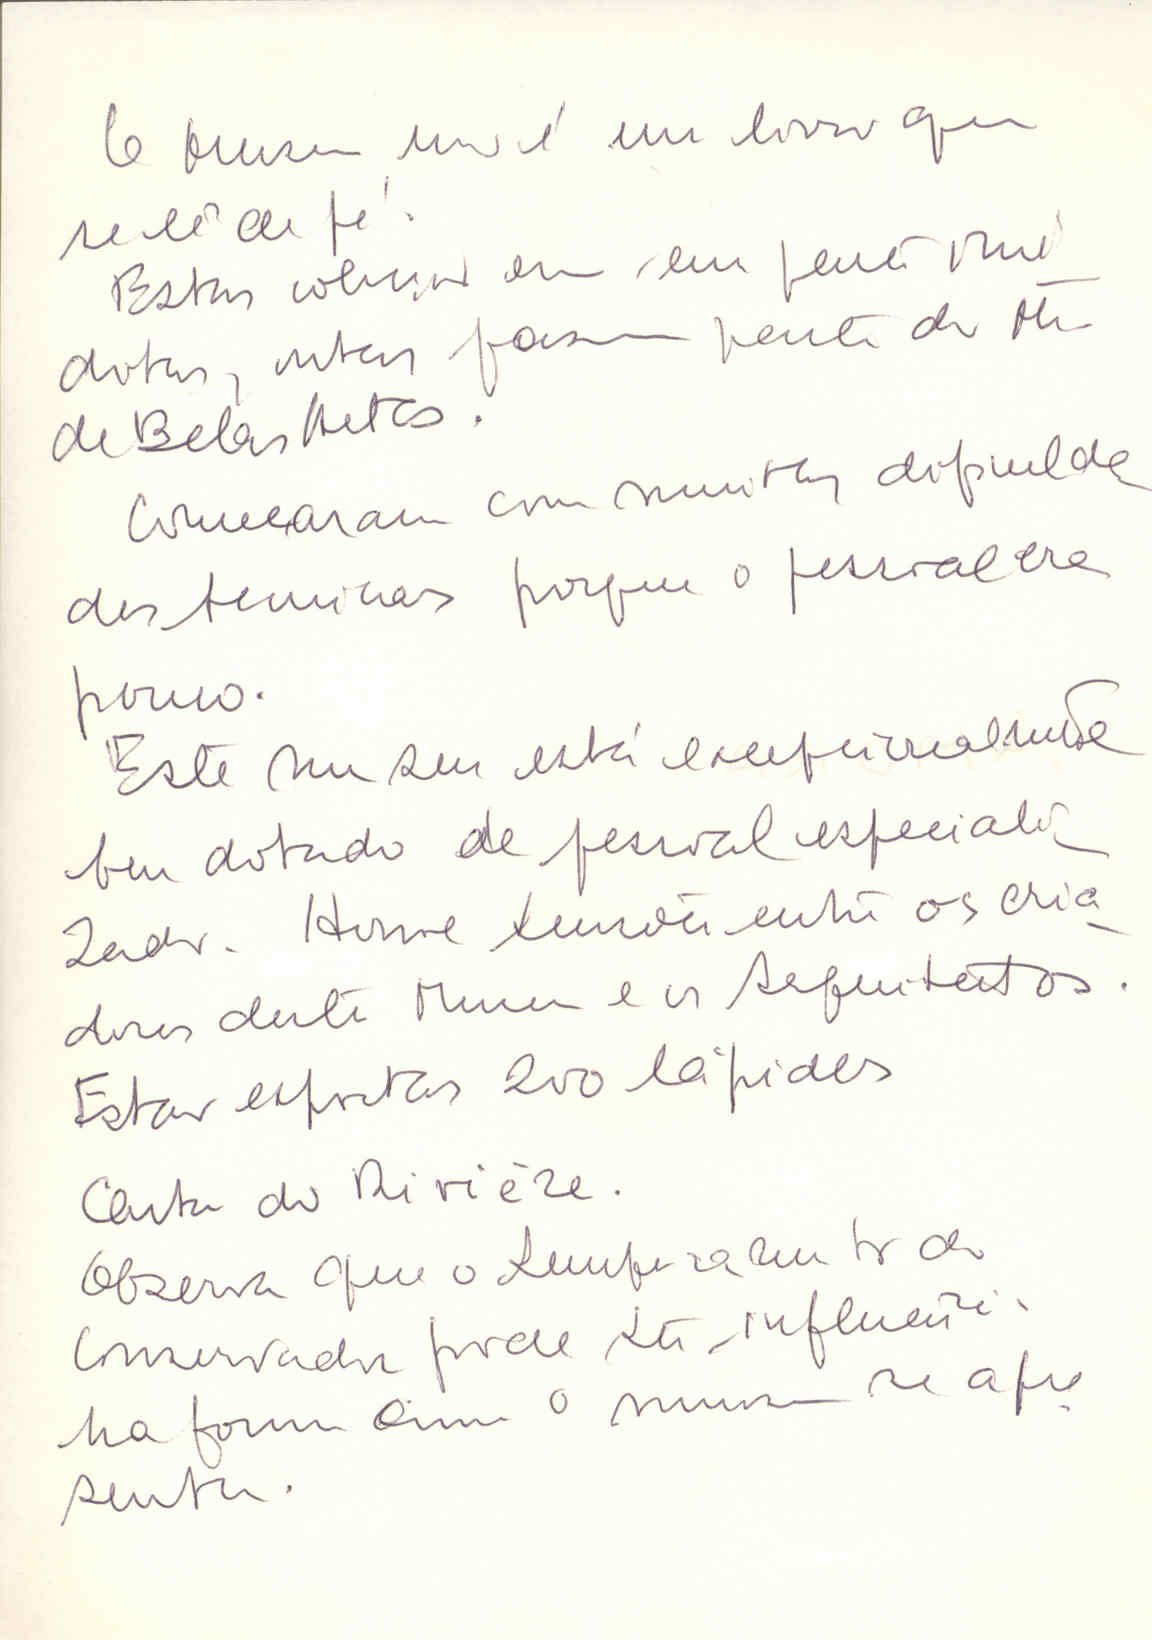 O Museu não é um livro que
se lê de pé.
Estas coleções em sua parte
dotas, estas fazem parte do Mu
de Belas Artes.
Começaram com muitas dificulda
des tecnicas porque o pessoal era
pouco.
Este museu está excepcionalmente
bem dotado de pessoal especiali
zado. Houve entre os cria
dores deste Museu e os Arquitectos.
Estão expostas 200 lápides
Carta do Rivière.
Observa que o temperamento do
Conservador pode ter influência
na forma como o museu se apre
senta.